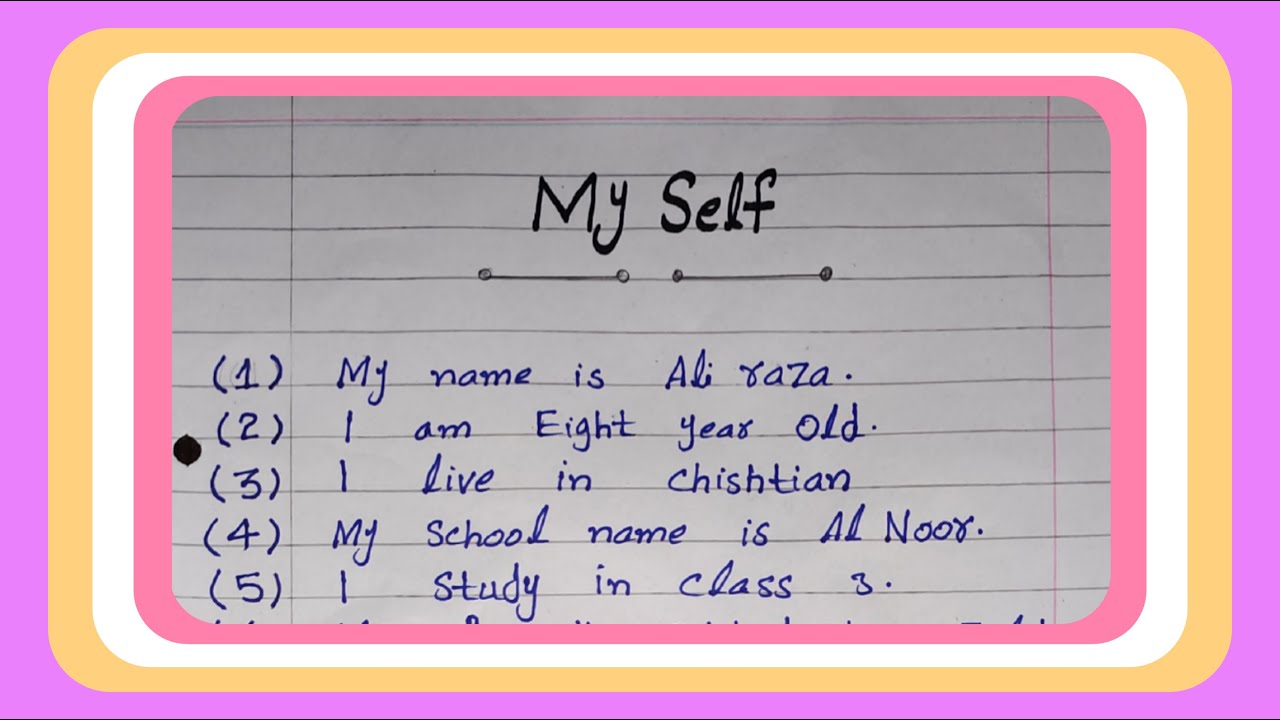 My Self
(1) My name is Ali raza.
(2) I am Eight year old.
(3) I live in chishtian
(4) My school name is Al Noor.
(5) I study in class 3.